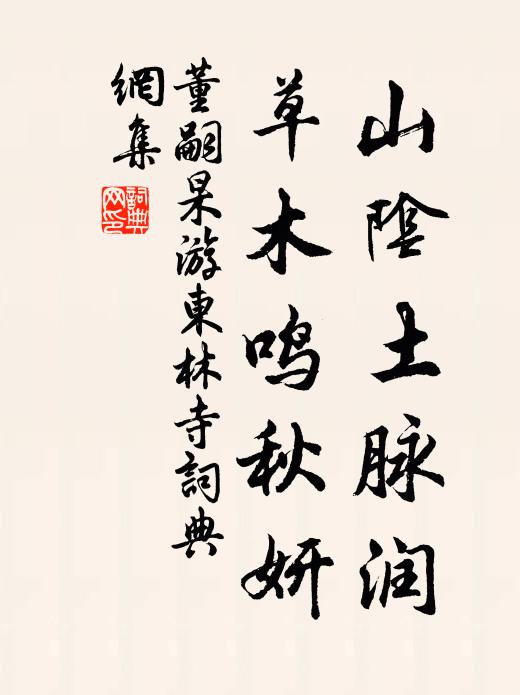 山陰土脉润
草木鸣秋妍
董嗣杲游東林寺詞典
網集
詞典网印